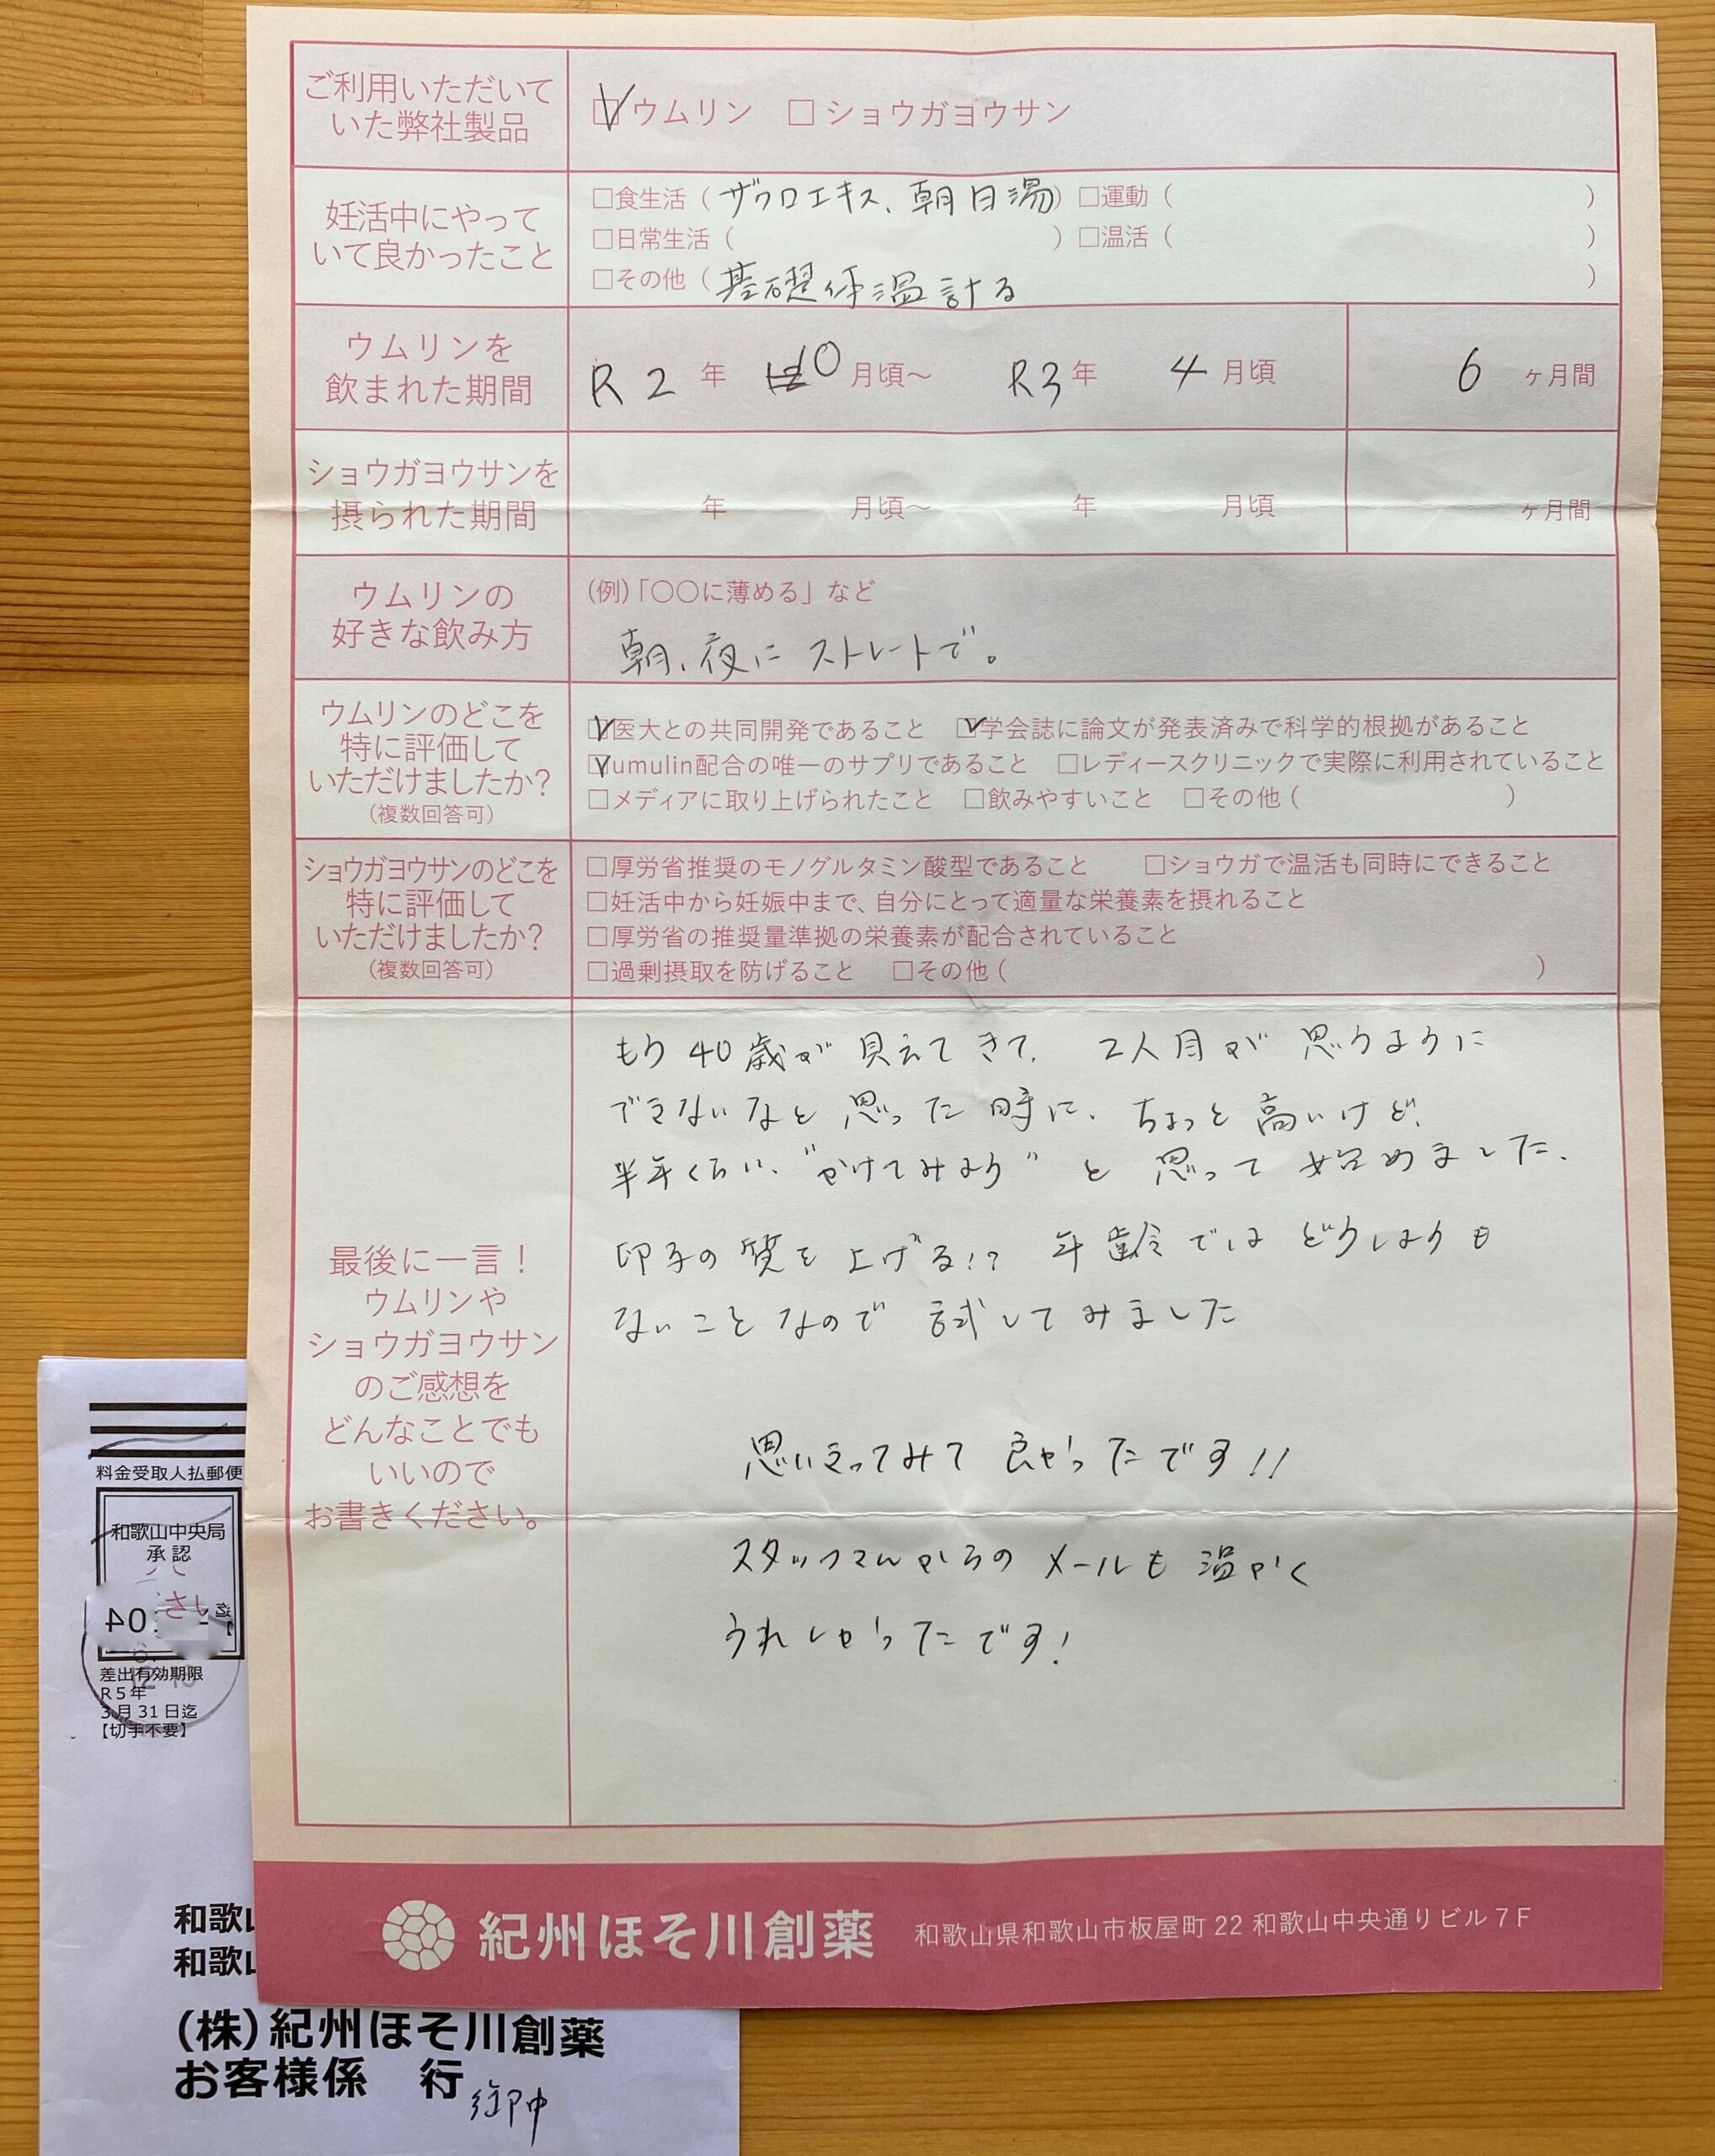 ご利用いただいて
いた弊社製品
☑ウムリン □ショウガヨウサン
妊活中にやって
いて良かったこと
□食生活(ザクロエキス、朝日湯) □運動( )
□日常生活( ) □温活( )
□その他(基礎体温計る )
ウムリンを
飲まれた期間
R2年 10月頃〜 R3年 4月頃 6ヶ月間
ショウガヨウサンを
摂られた期間
年 月頃〜 年 月頃 ヶ月間
ウムリンの
好きな飲み方
(例)「〇〇に薄める」など
朝、夜にストレートで。
ウムリンのどこを
特に評価して
いただけましたか?
(複数回答可)
☑医大との共同開発であること ☑学会誌に論文が発表済みで科学的根拠があること
☑umulin配合の唯一のサプリであること □レディースクリニックで実際に利用されていること
□メディアに取り上げられたこと □飲みやすいこと □その他( )
ショウガヨウサンのどこを
特に評価して
いただけましたか?
(複数回答可)
□厚労省推奨のモノグルタミン酸型であること □ショウガで温活も同時にできること
□妊活中から妊娠中まで、自分にとって適量な栄養素を摂れること
□厚労省の推奨量準拠の栄養素が配合されていること
□過剰摂取を防げること □その他( )
最後に一言!
ウムリンや
ショウガヨウサン
のご感想を
どんなことでも
いいので
お書きください。
もう40歳が見えてきて、2人目が思うように
できないなと思った時に、ちょっと高いけど、
半年くらい、"かけてみよう"と思って始めました。
卵子の質を上げる!? 年齢ではどうしようも
ないことなので試してみました
思い立ってみて良かったです!!
スタッフさんからのメールも温かく
うれしかったです!
紀州ほそ川創薬 和歌山県和歌山市板屋町22 和歌山中央通りビル7F
料金受取人払郵便
和歌山中央局
承認
差出有効期限
R5年
3月31日迄
【切手不要】
和歌山
和歌山
(株)紀州ほそ川創薬
お客様係 行 御中